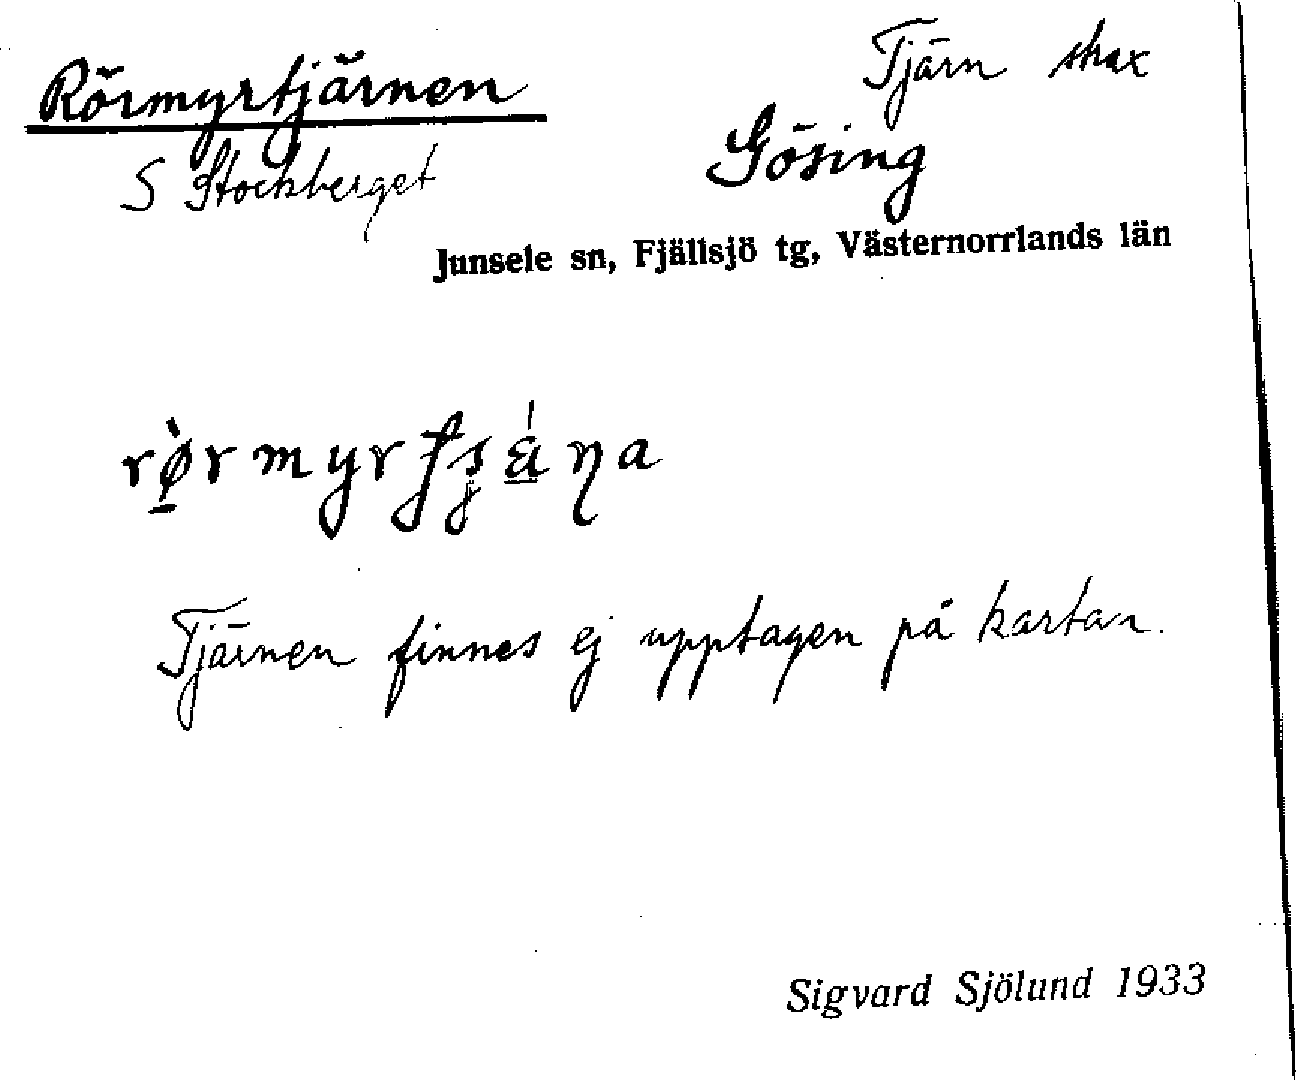 Rörmyrtjärnen
Tjärn strax
S Stockberget
Gösing
Junsele sn, Fjällsjö tg, Västernorrlands län
Tjärnen finnes ej upptagen på kartan.
Sigvard Sjölund 1933